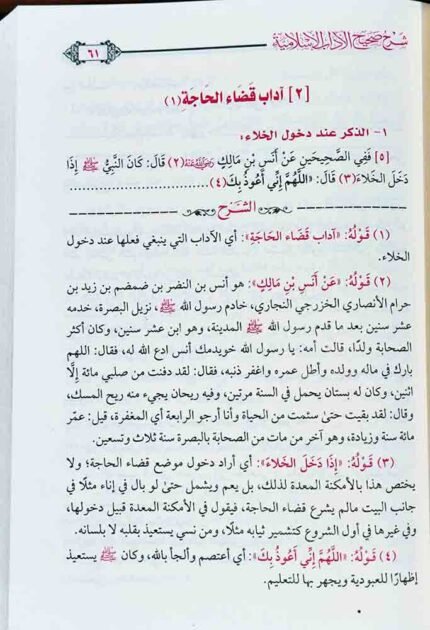 شرح صحيح الآداب الإسلامية
٦١
[٢] آداب قَضَاء الحَاجَة (١)
١- الذكر عند دخول الخلاء:
[٥] فَفِي الصَّحِيحَينِ عَنْ أَنَسِ بْنِ مَالِكٍ رضي الله عنه (٢) قَالَ: كَانَ النَّبِيُّ ﷺ إِذَا
دَخَلَ الخَلَاءَ (٣) قَالَ: «اللَّهُمَّ إِنِّي أَعُوذُ بِكَ (٤)........................
الشرح
(١) قَوْلُهُ: «آداب قَضَاء الحَاجَةِ»: أي الآداب التي ينبغي فعلها عند دخول
الخلاء.
(٢) قَوْلُهُ: «عَنْ أَنَسِ بْنِ مَالِكٍ»: هو أنس بن النضر بن ضمضم بن زيد بن
حرام الأنصاري الخزرجي النجاري، خادم رسول الله ﷺ، نزيل البصرة، خدمه
عشر سنين بعد ما قدم رسول الله ﷺ المدينة، وهو ابن عشر سنين، وكان أكثر
الصحابة ولدًا، قالت أمه: يا رسول الله خويدمك أنس ادع الله له، فقال: اللهم
بارك في ماله وولده وأطل عمره واغفر ذنبه، فقال: لقد دفنت من صلبي مائة إِلَّا
اثنين، وكان له بستان يحمل في السنة مرتين، وفيه ريحان يجيء منه ريح المسك،
وقال: لقد بقيت حتىٰ سئمت من الحياة وأنا أرجو الرابعة أي المغفرة، قيل: عمّر
مائة سنة وزيادة، وهو آخر من مات من الصحابة بالبصرة سنة ثلاث وتسعين.
(٣) قَوْلُهُ: «إِذَا دَخَلَ الخَلَاءَ»: أي أراد دخول موضع قضاء الحاجة؛ ولا
يختص هذا بالأمكنة المعدة لذلك، بل يعم ويشمل حتىٰ لو بال في إناء مثلًا في
جانب البيت مالم يشرع قضاء الحاجة، فيقول في الأمكنة المعدة قبيل دخولها،
وفي غيرها في أول الشروع كتشمير ثيابه مثلًا، ومن نسي يستعيذ بقلبه لا بلسانه.
(٤) قَوْلُهُ: «اللَّهُمَّ إِنِّي أَعُوذُ بِكَ»: أي أعتصم وألجأ بالله، وكان ﷺ يستعيذ
إظهارًا للعبودية ويجهر بها للتعليم.